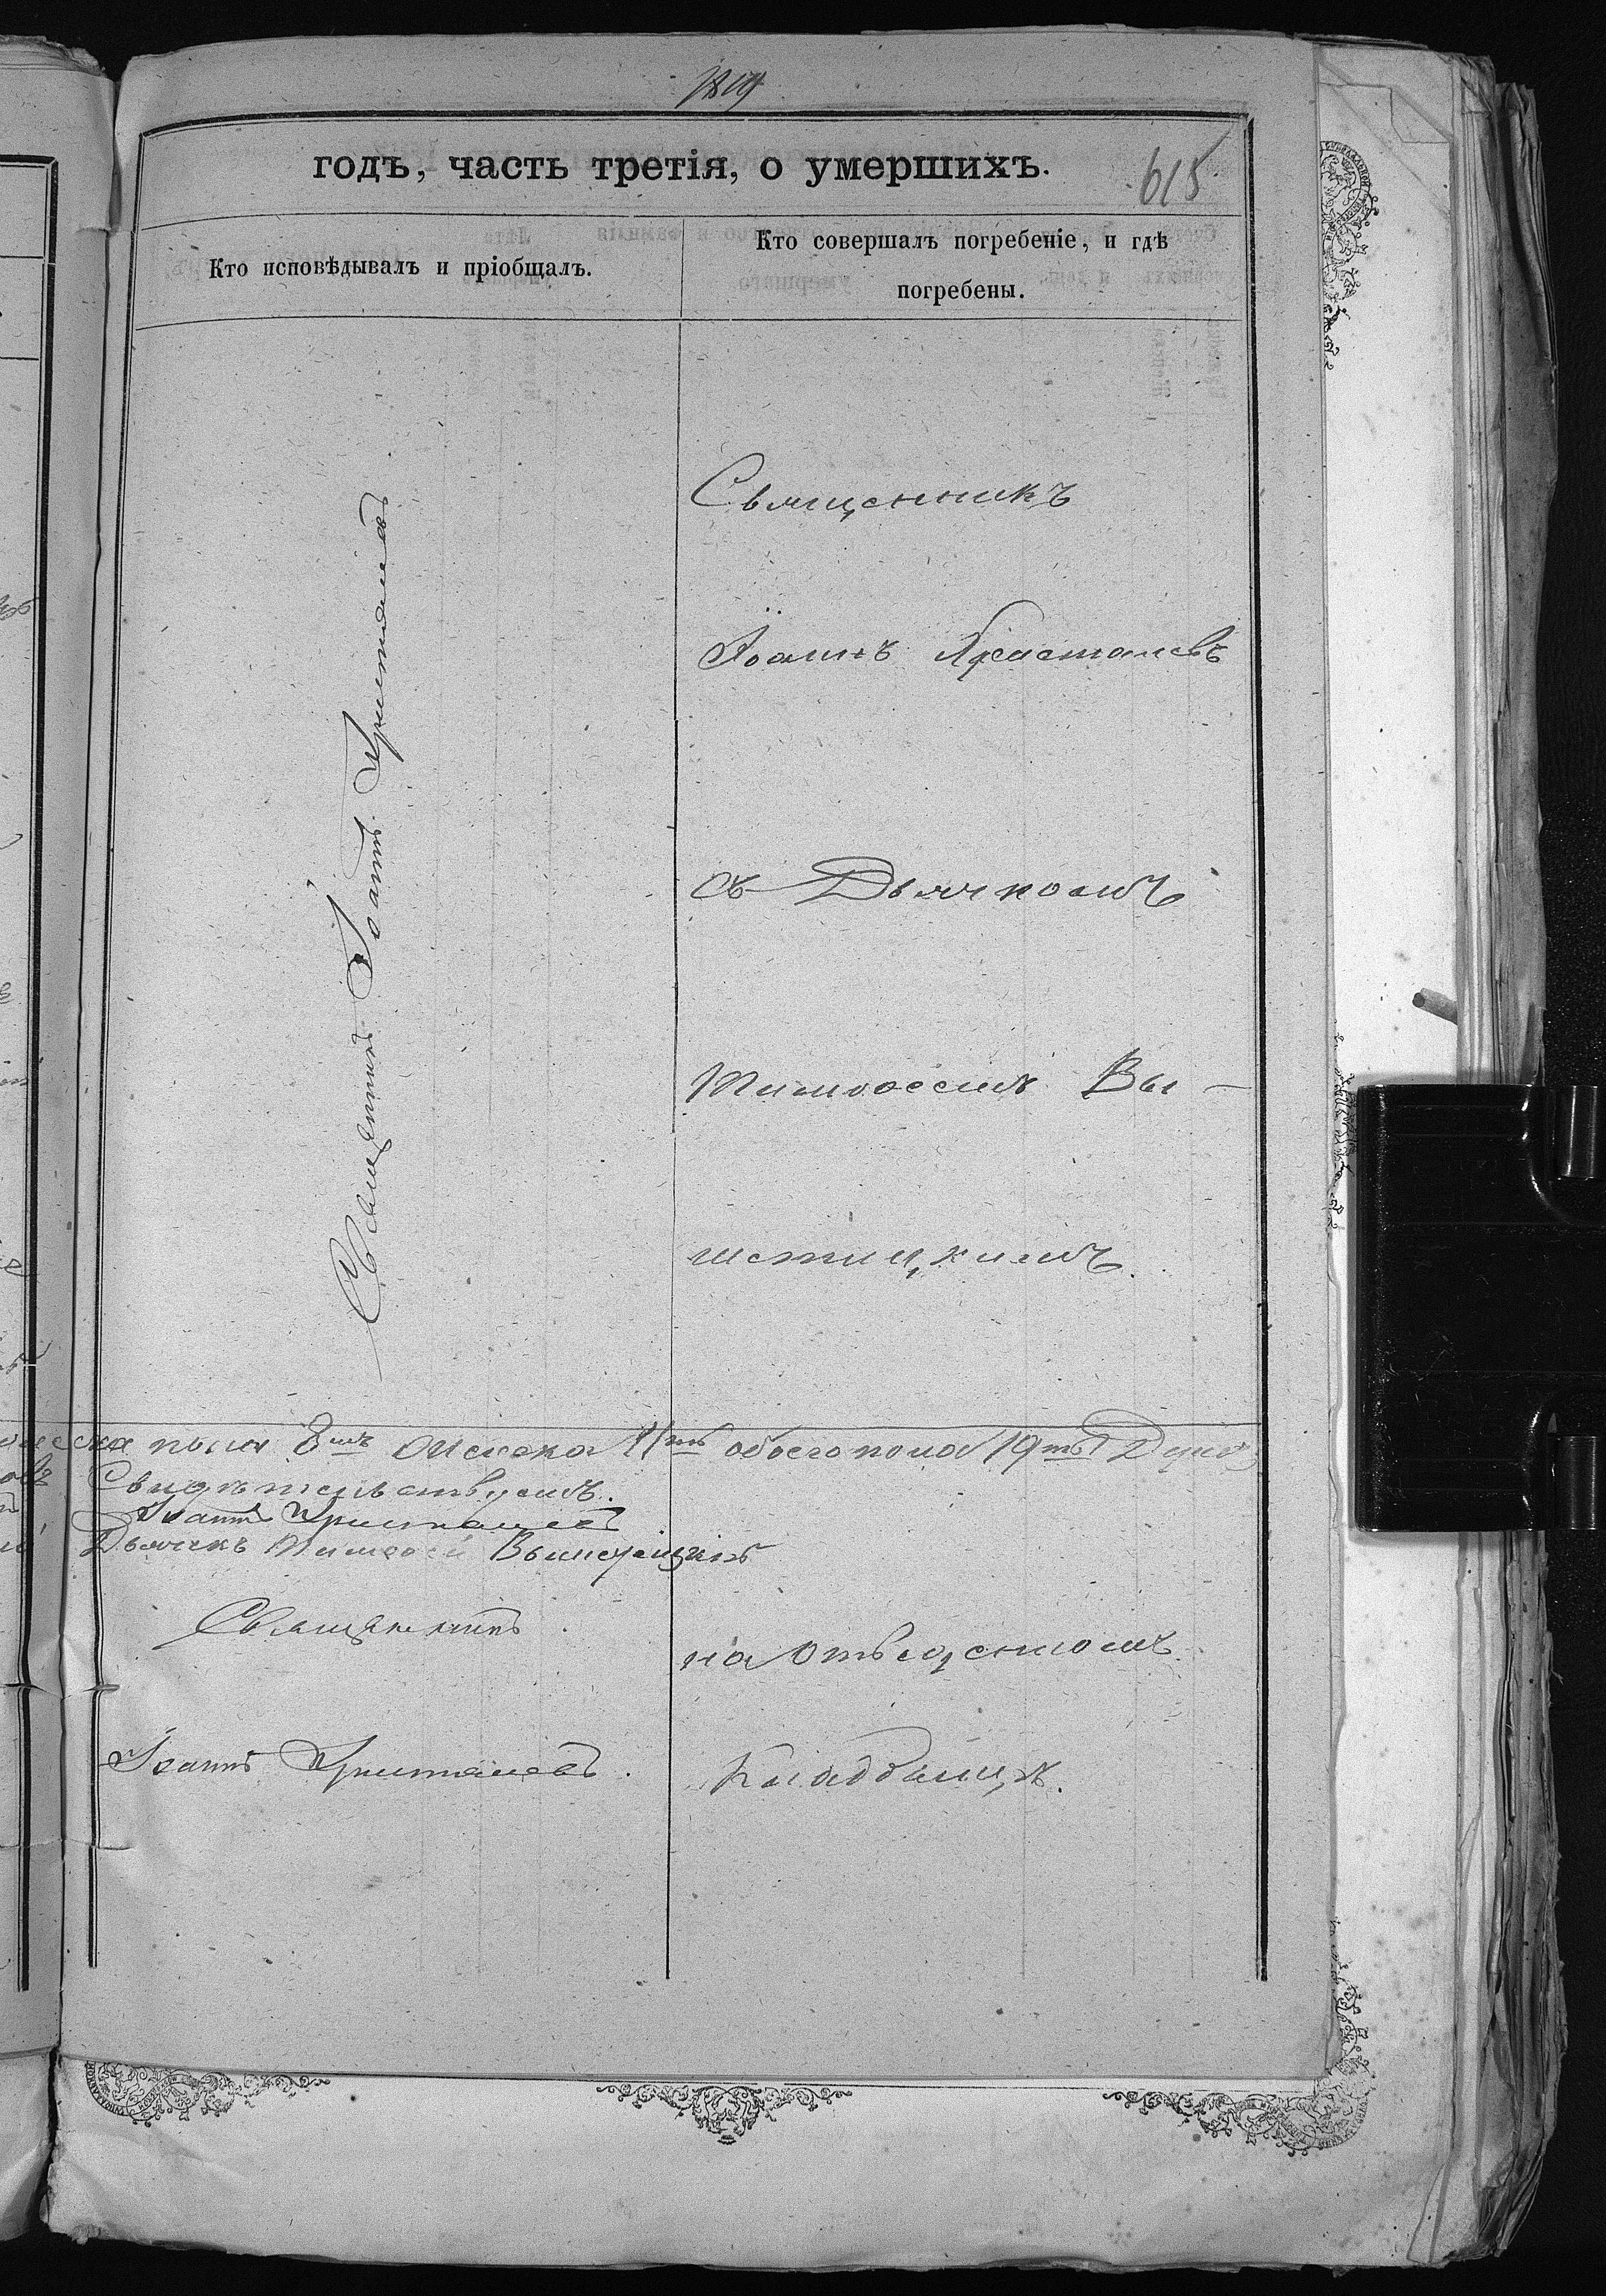 годъ, часть третія, о умершихъ.
615
Кто исповѣдывалъ и пріобщалъ.
Кто совершалъ погребеніе, и гдѣ
погребены.
Священникъ Іоаннъ Кристалевъ
Священникъ
Іоаннъ Кристалевъ
съ Дьячкомъ
Тимоѳеемъ Вы-
шетицкимъ.
пола 8мь Женска 11ть обоего пола 19ть Душъ
Свидѣтельствуемъ.
Іоаннъ Кристалевъ
Дьячекъ Тимоѳей
Священникъ
Іоаннъ Кристалевъ.
на отведенномъ
Кладбищѣ.